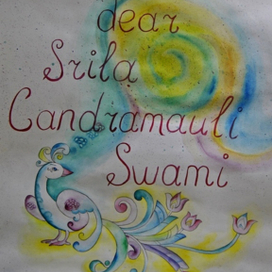 dear
Srila
Candramauli
Swami